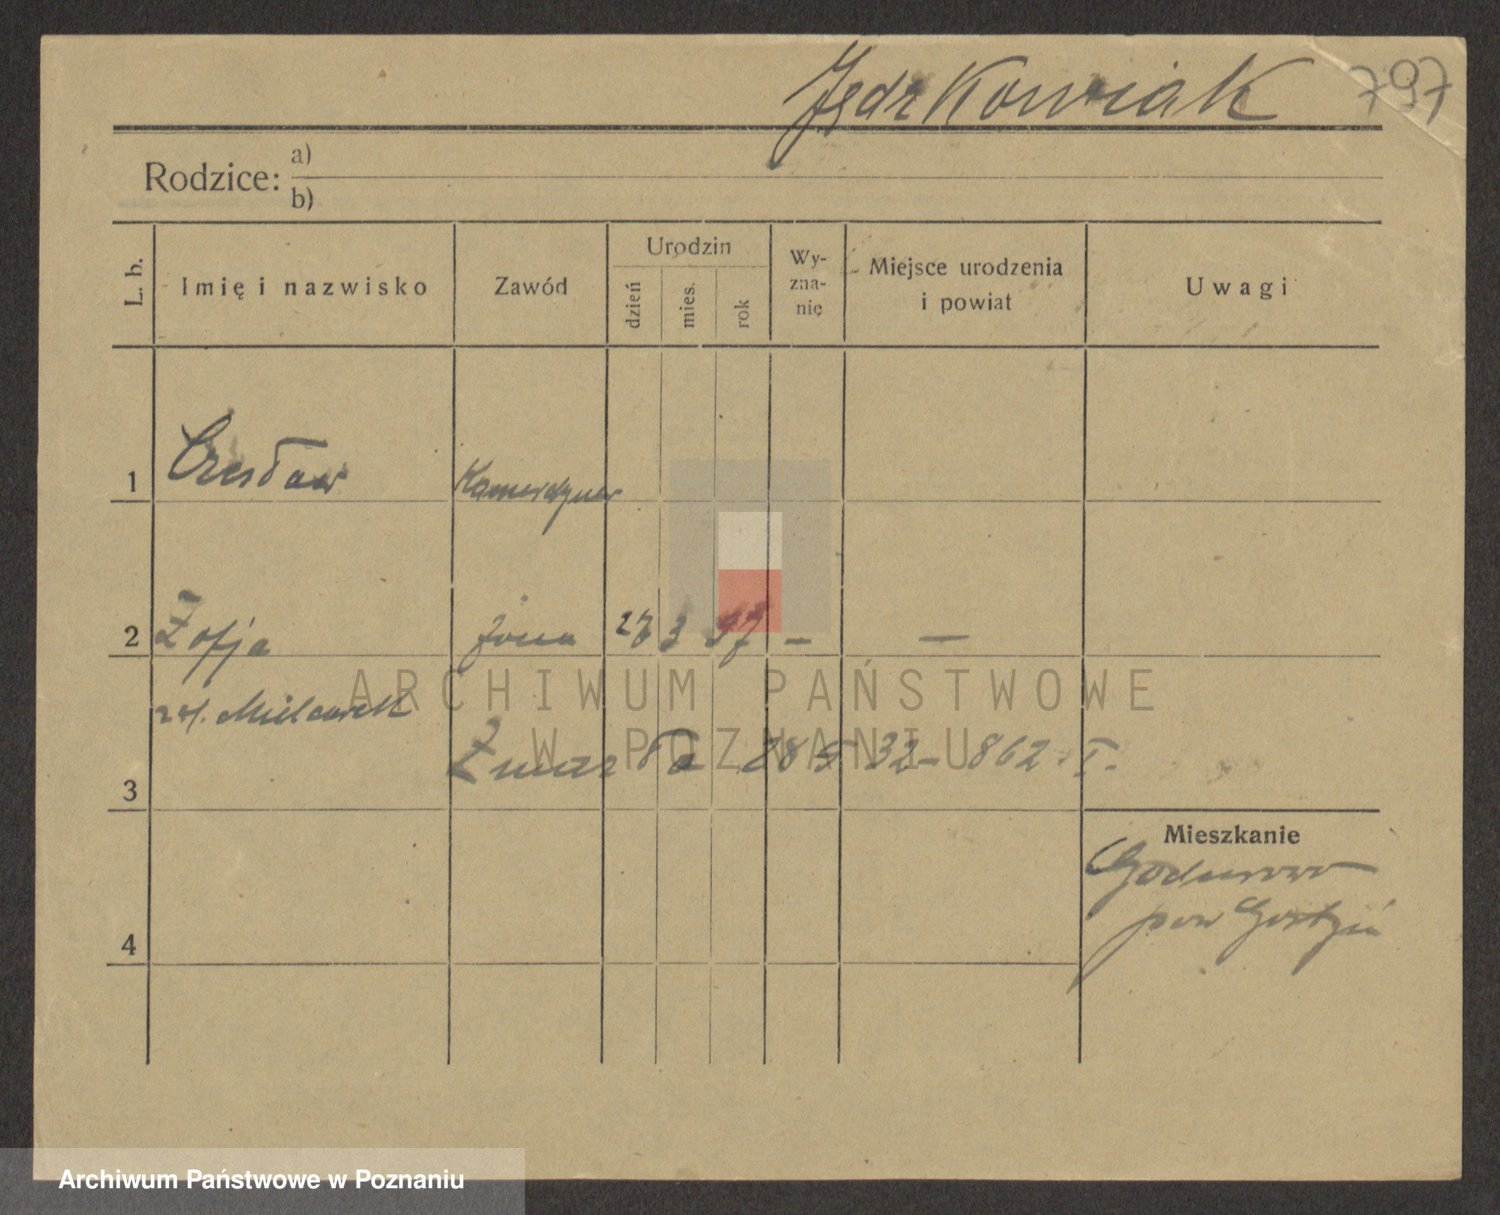 Jędrkowiak 797
Rodzice: a)
b)
L. b. Imię i nazwisko Zawód Urodzin dzień mies. rok Wy-zna-nię Miejsce urodzenia i powiat Uwagi
1 Czesław Kamerdyner
2 Zofja żona 27 3 97 — —
zd. Mielcarek
ARCHIWUM PAŃSTWOWE
W POZNANIU
Zmarła 28 5 32 – 862 I.
3
Mieszkanie
Godurowo
pow Gostyń
4
Archiwum Państwowe w Poznaniu